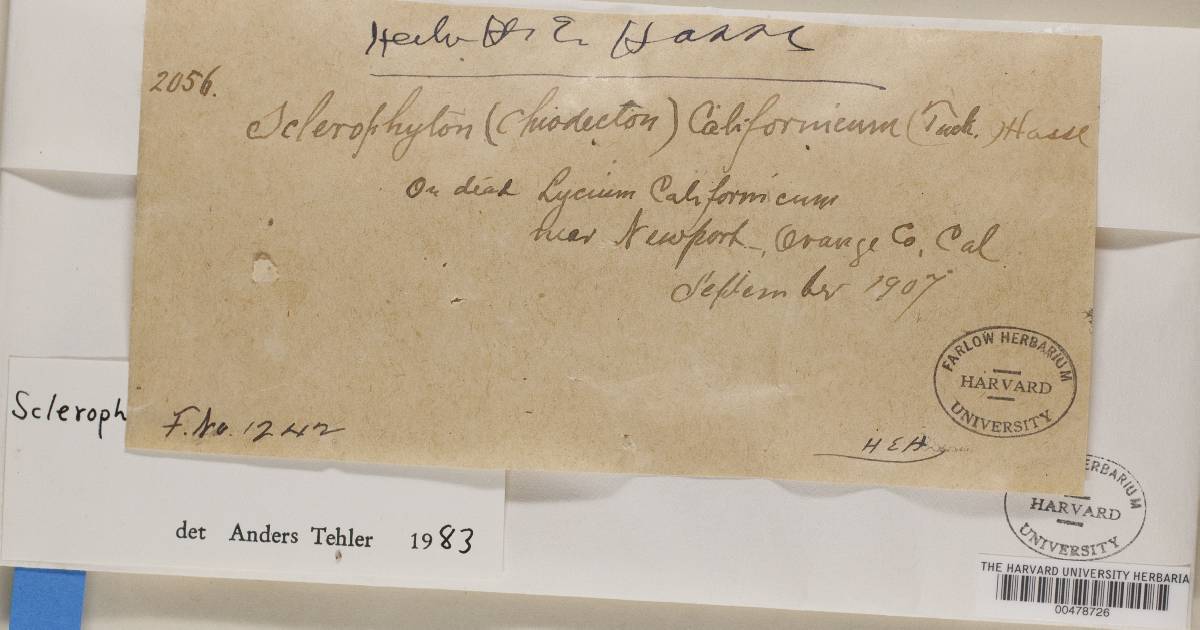 Herb. H. E. Hasse
2056.
Sclerophyton (Chiodecton) Californicum (Tuck.) Hasse
On dead Lycium Californicum
near Newport, Orange Co, Cal
September 1907
FARLOW HERBARIUM
HARVARD
UNIVERSITY
F. No. 1242
HEH
Scleroph
det Anders Tehler 1983
ERBARIUM
HARVARD
UNIVERSITY
THE HARVARD UNIVERSITY HERBARIA
00478726